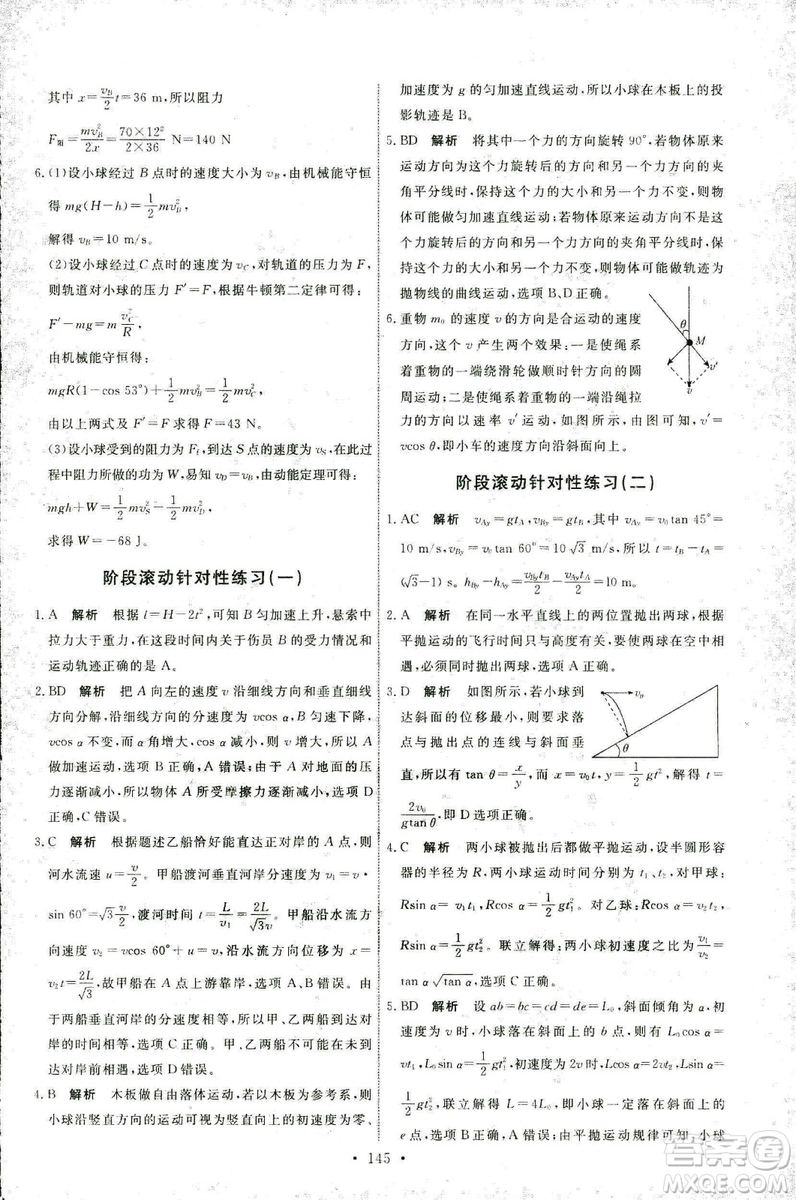 其中 x=\frac{v_B}{2}t=36 m,所以阻力
F_阻=\frac{mv_B^2}{2x}=\frac{70×12^2}{2×36} N=140 N
6.(1)设小球经过 B 点时的速度大小为 v_B,由机械能守恒
得 mg(H-h)=\frac{1}{2}mv_B^2,
解得 v_B=10 m/s。
(2)设小球经过 C 点时的速度为 v_C,对轨道的压力为 F,
则轨道对小球的压力 F′=F,根据牛顿第二定律可得
F′-mg=m\frac{v_C^2}{R}
由机械能守恒得:
mgR(1-cos 53°)+\frac{1}{2}mv_B^2=\frac{1}{2}mv_C^2
由以上两式及 F′=F 求得 F=43 N。
(3)设小球受到的阻力为 F_f,到达 S 点的速度为 v_S,在此过
程中阻力所做的功为 W,易知 v_D=v_B,由动能定理可得:
mgh+W=\frac{1}{2}mv_S^2-\frac{1}{2}mv_D^2,
求得 W=-68 J。
阶段滚动针对性练习(一)
1.A 解析 根据 l=H-2t^2,可知 B 匀加速上升,悬索中
拉力大于重力,在这段时间内关于伤员 B 的受力情况和
运动轨迹正确的是 A。
2.BD 解析 把 A 向左的速度 v 沿细线方向和垂直细线
方向分解,沿细线方向的分速度为 vcos α,B 匀速下降,
vcos α 不变,而 α 角增大,cos α 减小,则 v 增大,所以 A
做加速运动,选项 B、D 正确,A 错误;由于 A 对地面的压
力逐渐减小,所以物体 A 所受摩擦力逐渐减小,C 错误。
3.C 解析 根据题述乙船恰好能直达正对岸的 A 点,则
河水流速 u=\frac{v}{2}。甲船渡河垂直河岸分速度为 v_1=v·
sin 60°=\frac{\sqrt{3}}{2}v,渡河时间 t=\frac{L}{v_1}=\frac{2L}{\sqrt{3}v}。甲船沿水流方
向速度为 v_2=vcos 60°+u=v,沿水流方向位移为 x=
v_2t=\frac{2L}{\sqrt{3}},故甲船在 A 点上游靠岸,选项 A、B 错误。由
于两船垂直河岸的分速度相等,所以甲、乙两船划水速度
大小相等,甲、乙两船同时到达对岸,不可能在未到达
对岸前相遇,选项 C 正确,D 错误。
4.B 解析 木板做自由落体运动,若以木板为参考系,则
小球沿竖直方向的运动可视为竖直向上的初速度为零、
加速度为 g 的匀加速直线运动,所以小球在木板上的投
影轨迹是 B。
5.BD 解析 将其中一个力的方向旋转 90°,若物体原来
运动方向与旋转后的一个力和另一个力的方向的夹角
平分线时,保持这个力和另一个力不变,则物体可能
可能做匀加速直线运动;若物体原来
运动方向不在旋转后的一个力和另一个力的方向的夹角平分线上时,保持这个力的
的大小和另一个力不变,则物体可能做轨迹为
抛物线的曲线运动,选项 B、D 正确。
6.重物 m_0 的速度 v 的方向是合运动的速度
方向,这个 v 产生两个效果:一是使绳系
着重物的一端绕滑轮做顺时针方向的圆
周运动;二是使绳系着重物的一端沿绳拉
力的方向以速率 v′运动,如图所示,由图可知,v′=
vcos θ,即小车的速度方向沿斜面向上。
θ
M
v′
v
阶段滚动针对性练习(二)
1.AC 解析 v_{Ay}=gt_A,v_{By}=gt_B,其中 v_{Ay}=v_0tan 45°=
10 m/s,v_{By}=v_0tan 60°=10\sqrt{3} m/s,所以 t=t_B-t_A=
(\sqrt{3}-1) s。h_{By}-h_{Ay}=\frac{v_{By}t_B}{2}-\frac{v_{Ay}t_A}{2}=10 m。
2.A 解析 在同一水平直线上的两位置抛出两球,根据
平抛运动的飞行时间只与高度有关,要使两球在空中相
遇,必须同时抛出两球,选项 A 正确。
3.D 解析 如图所示,若小球到
达斜面的位移最小,则要求落
点与抛出点的连线与斜面垂
直,所以有 tan θ=\frac{x}{y},而 x=
v_0t,y=\frac{1}{2}gt^2,解得 t=
\frac{2v_0}{gtan θ},即 D 选项正确。
v_0
θ
4.C 解析 两小球被抛出后都做平抛运动,设半圆形容
器的半径为 R,两小球运动时间分别为 t_1、t_2,对甲球:
Rsin α=v_1t_1,Rcos α=\frac{1}{2}gt_1^2。对乙球:Rcos α=v_2t_2,
Rsin α=\frac{1}{2}gt_2^2。联立解得:两小球初速度之比为\frac{v_1}{v_2}=
tan α\sqrt{tan α},选项 C 正确。
5.BD 解析 设 ab=bc=cd=de=L_0,斜面倾角为 α,初
速度为 v 时,小球落在斜面上的 b 点,则有 L_0cos α=
vt_1,L_0sin α=\frac{1}{2}gt_1^2,初速度为 2v 时,则有 Lcos α=
2vt_2,Lsin α=\frac{1}{2}gt_2^2,联立解得 L=4L_0,即小球一定落在斜面上的
e 点,选项 B 正确,A 错误;由平抛运动规律可知,小球
145
答案圈
MXQE.COM